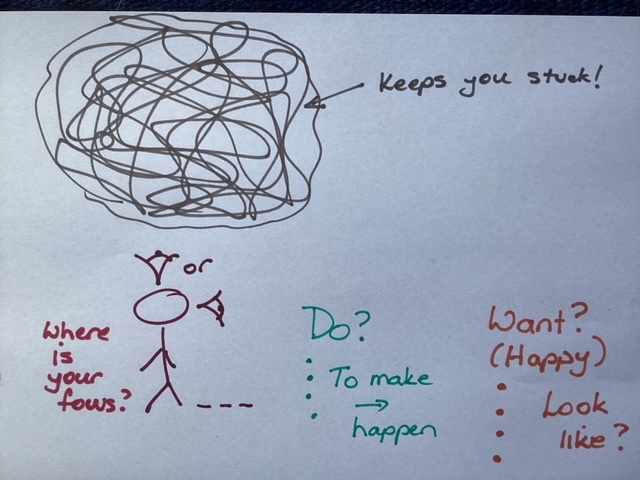 Keeps you stuck!
or
Where
is
your
focus?
Do?
To make
→
happen
Want?
(Happy)
Look
like?